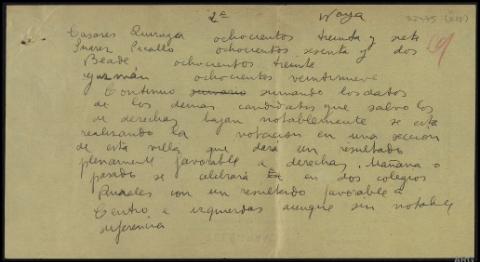 2ª Noya
Casares Quiroga ochocientos treinta y siete
Suarez Picallo ochocientos sesenta y dos
Beade ochocientos treinta
Guzmán ochocientos veintinueve
Continuo sumando los datos
de los demas candidatos que salvo los
de derechas bajan notablemente se esta
realizando la votacion en una seccion
de esta villa que dara un resultado
plenamente favorable a derechas. Mañana o
pasado se celebrará en dos colegios
Rurales con un resultado favorable a
Centro e izquierdas aunque sin notable
diferencia